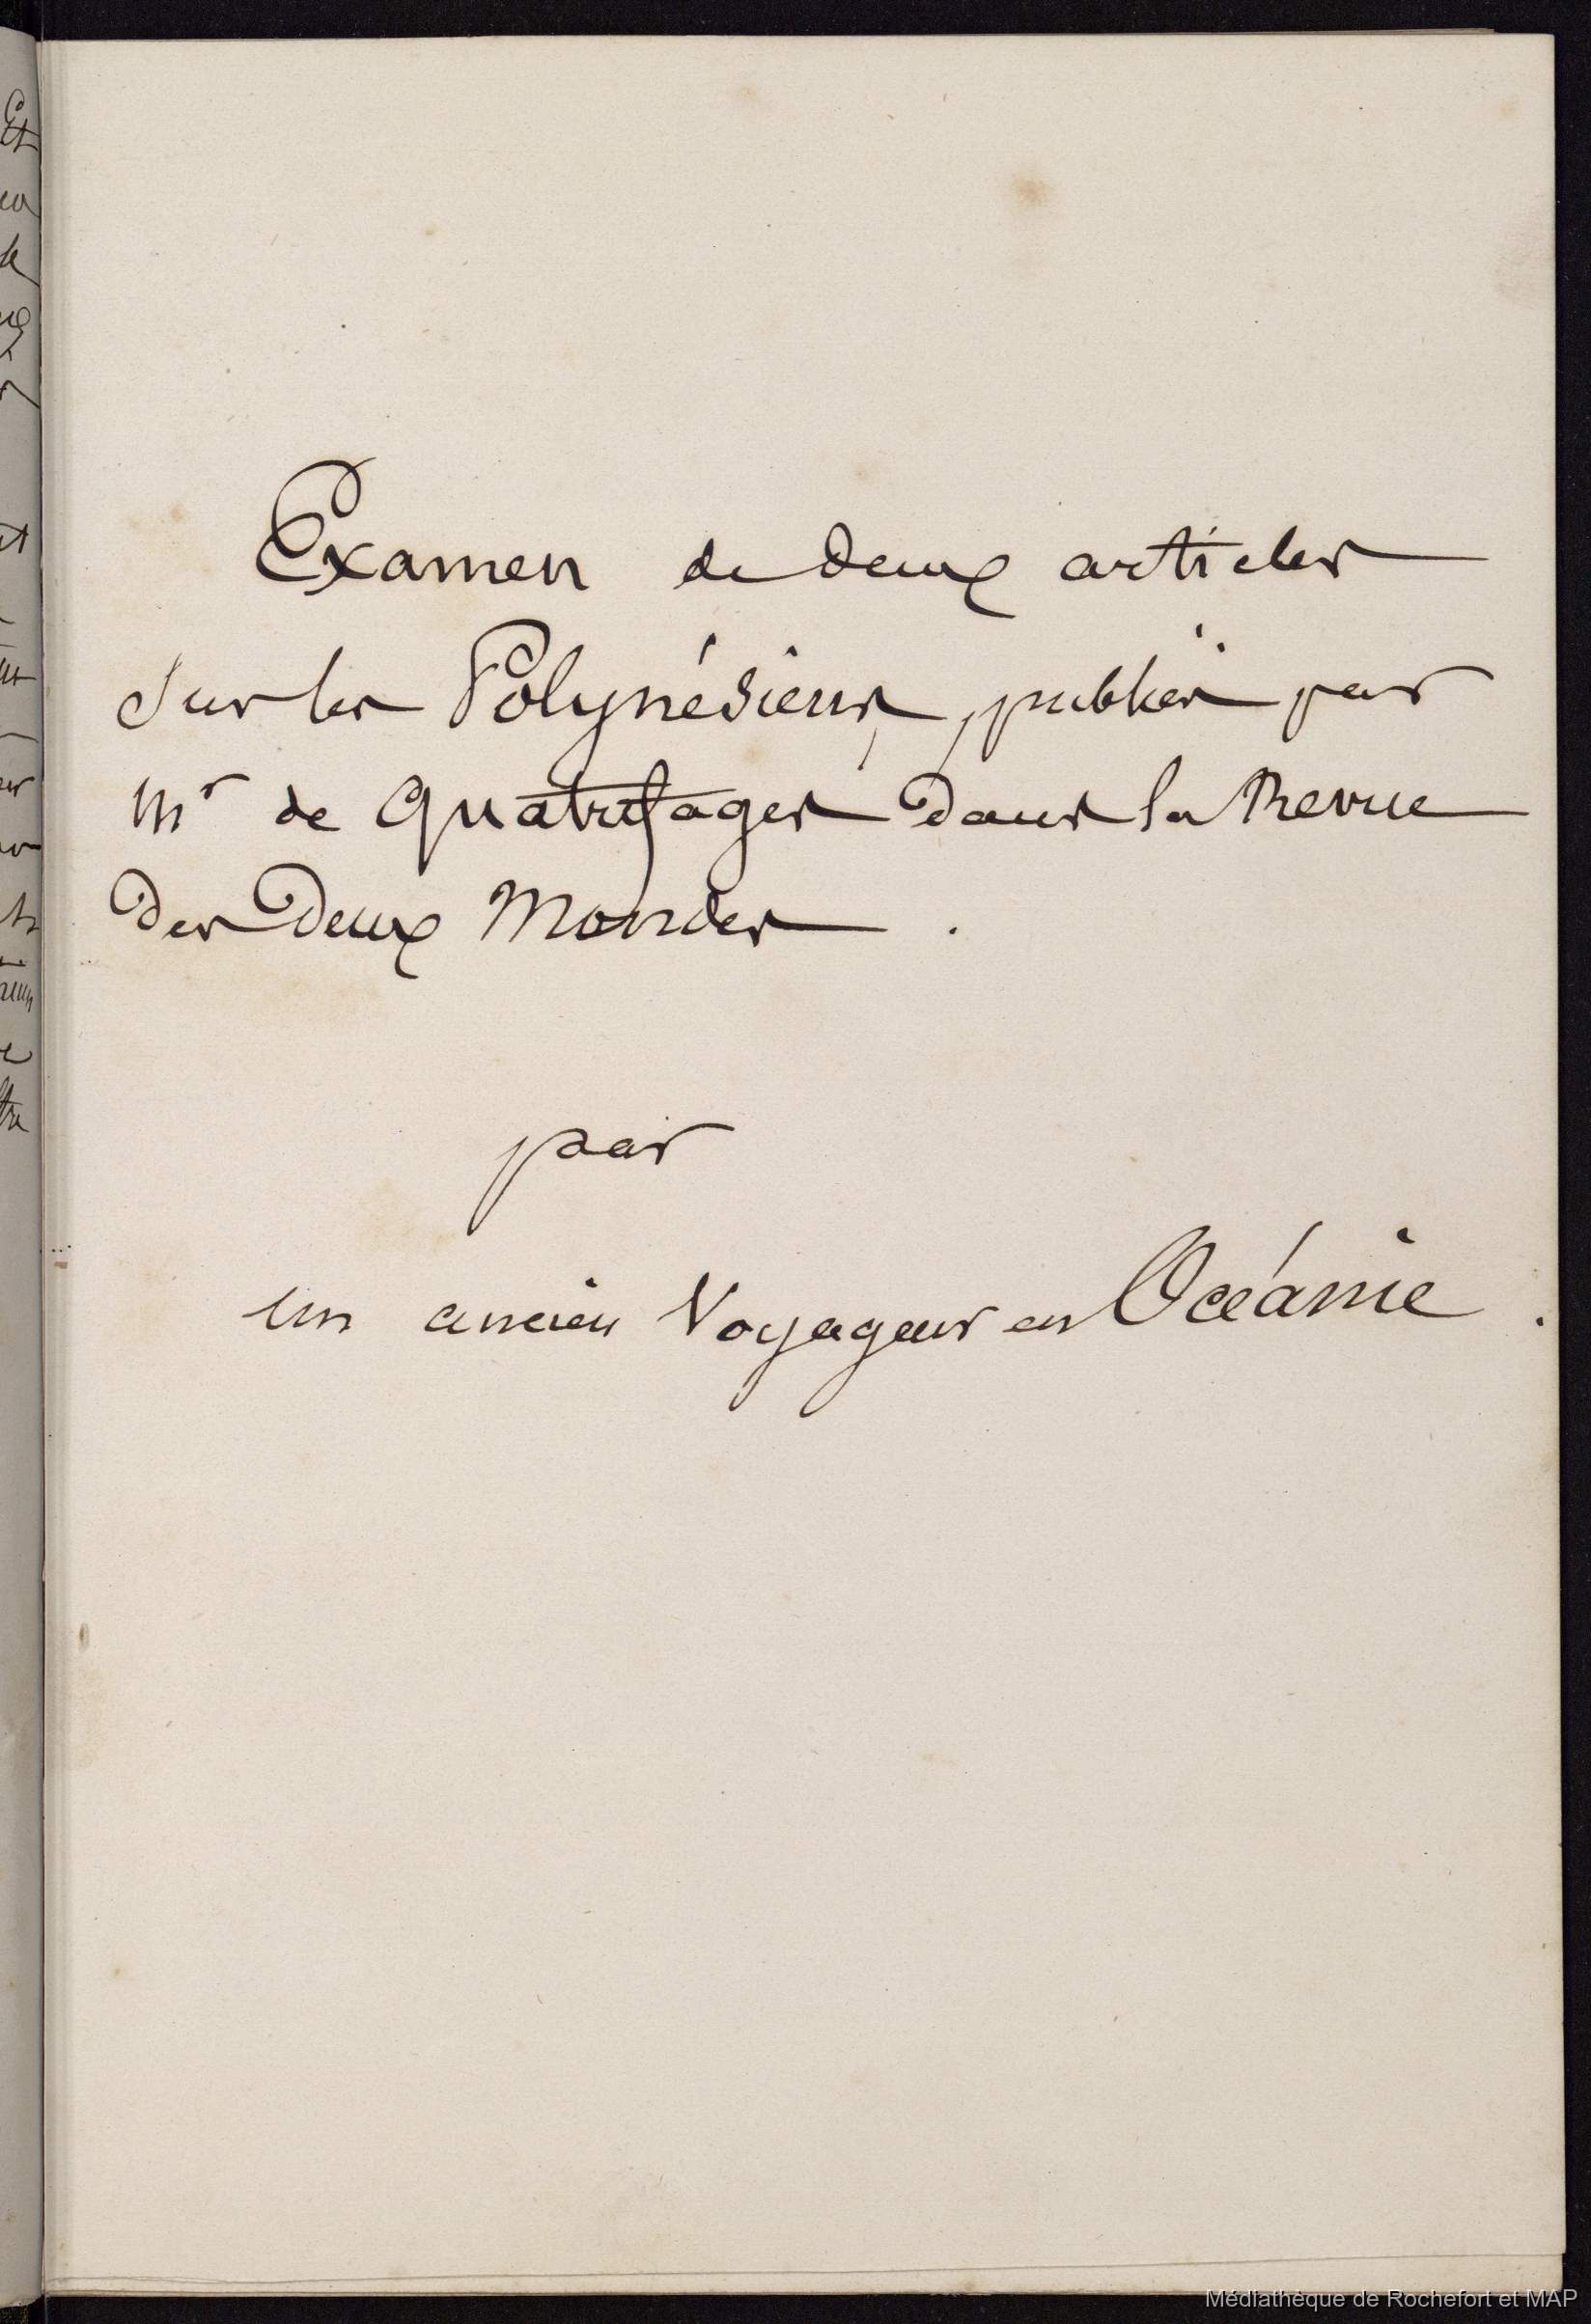 Examen de deux articles
sur les Polynésiens, publiés par
Mr de Quatrefages dans la Revue
des Deux Mondes.
par
un ancien Voyageur en Océanie.
Médiathèque de Rochefort et MAP